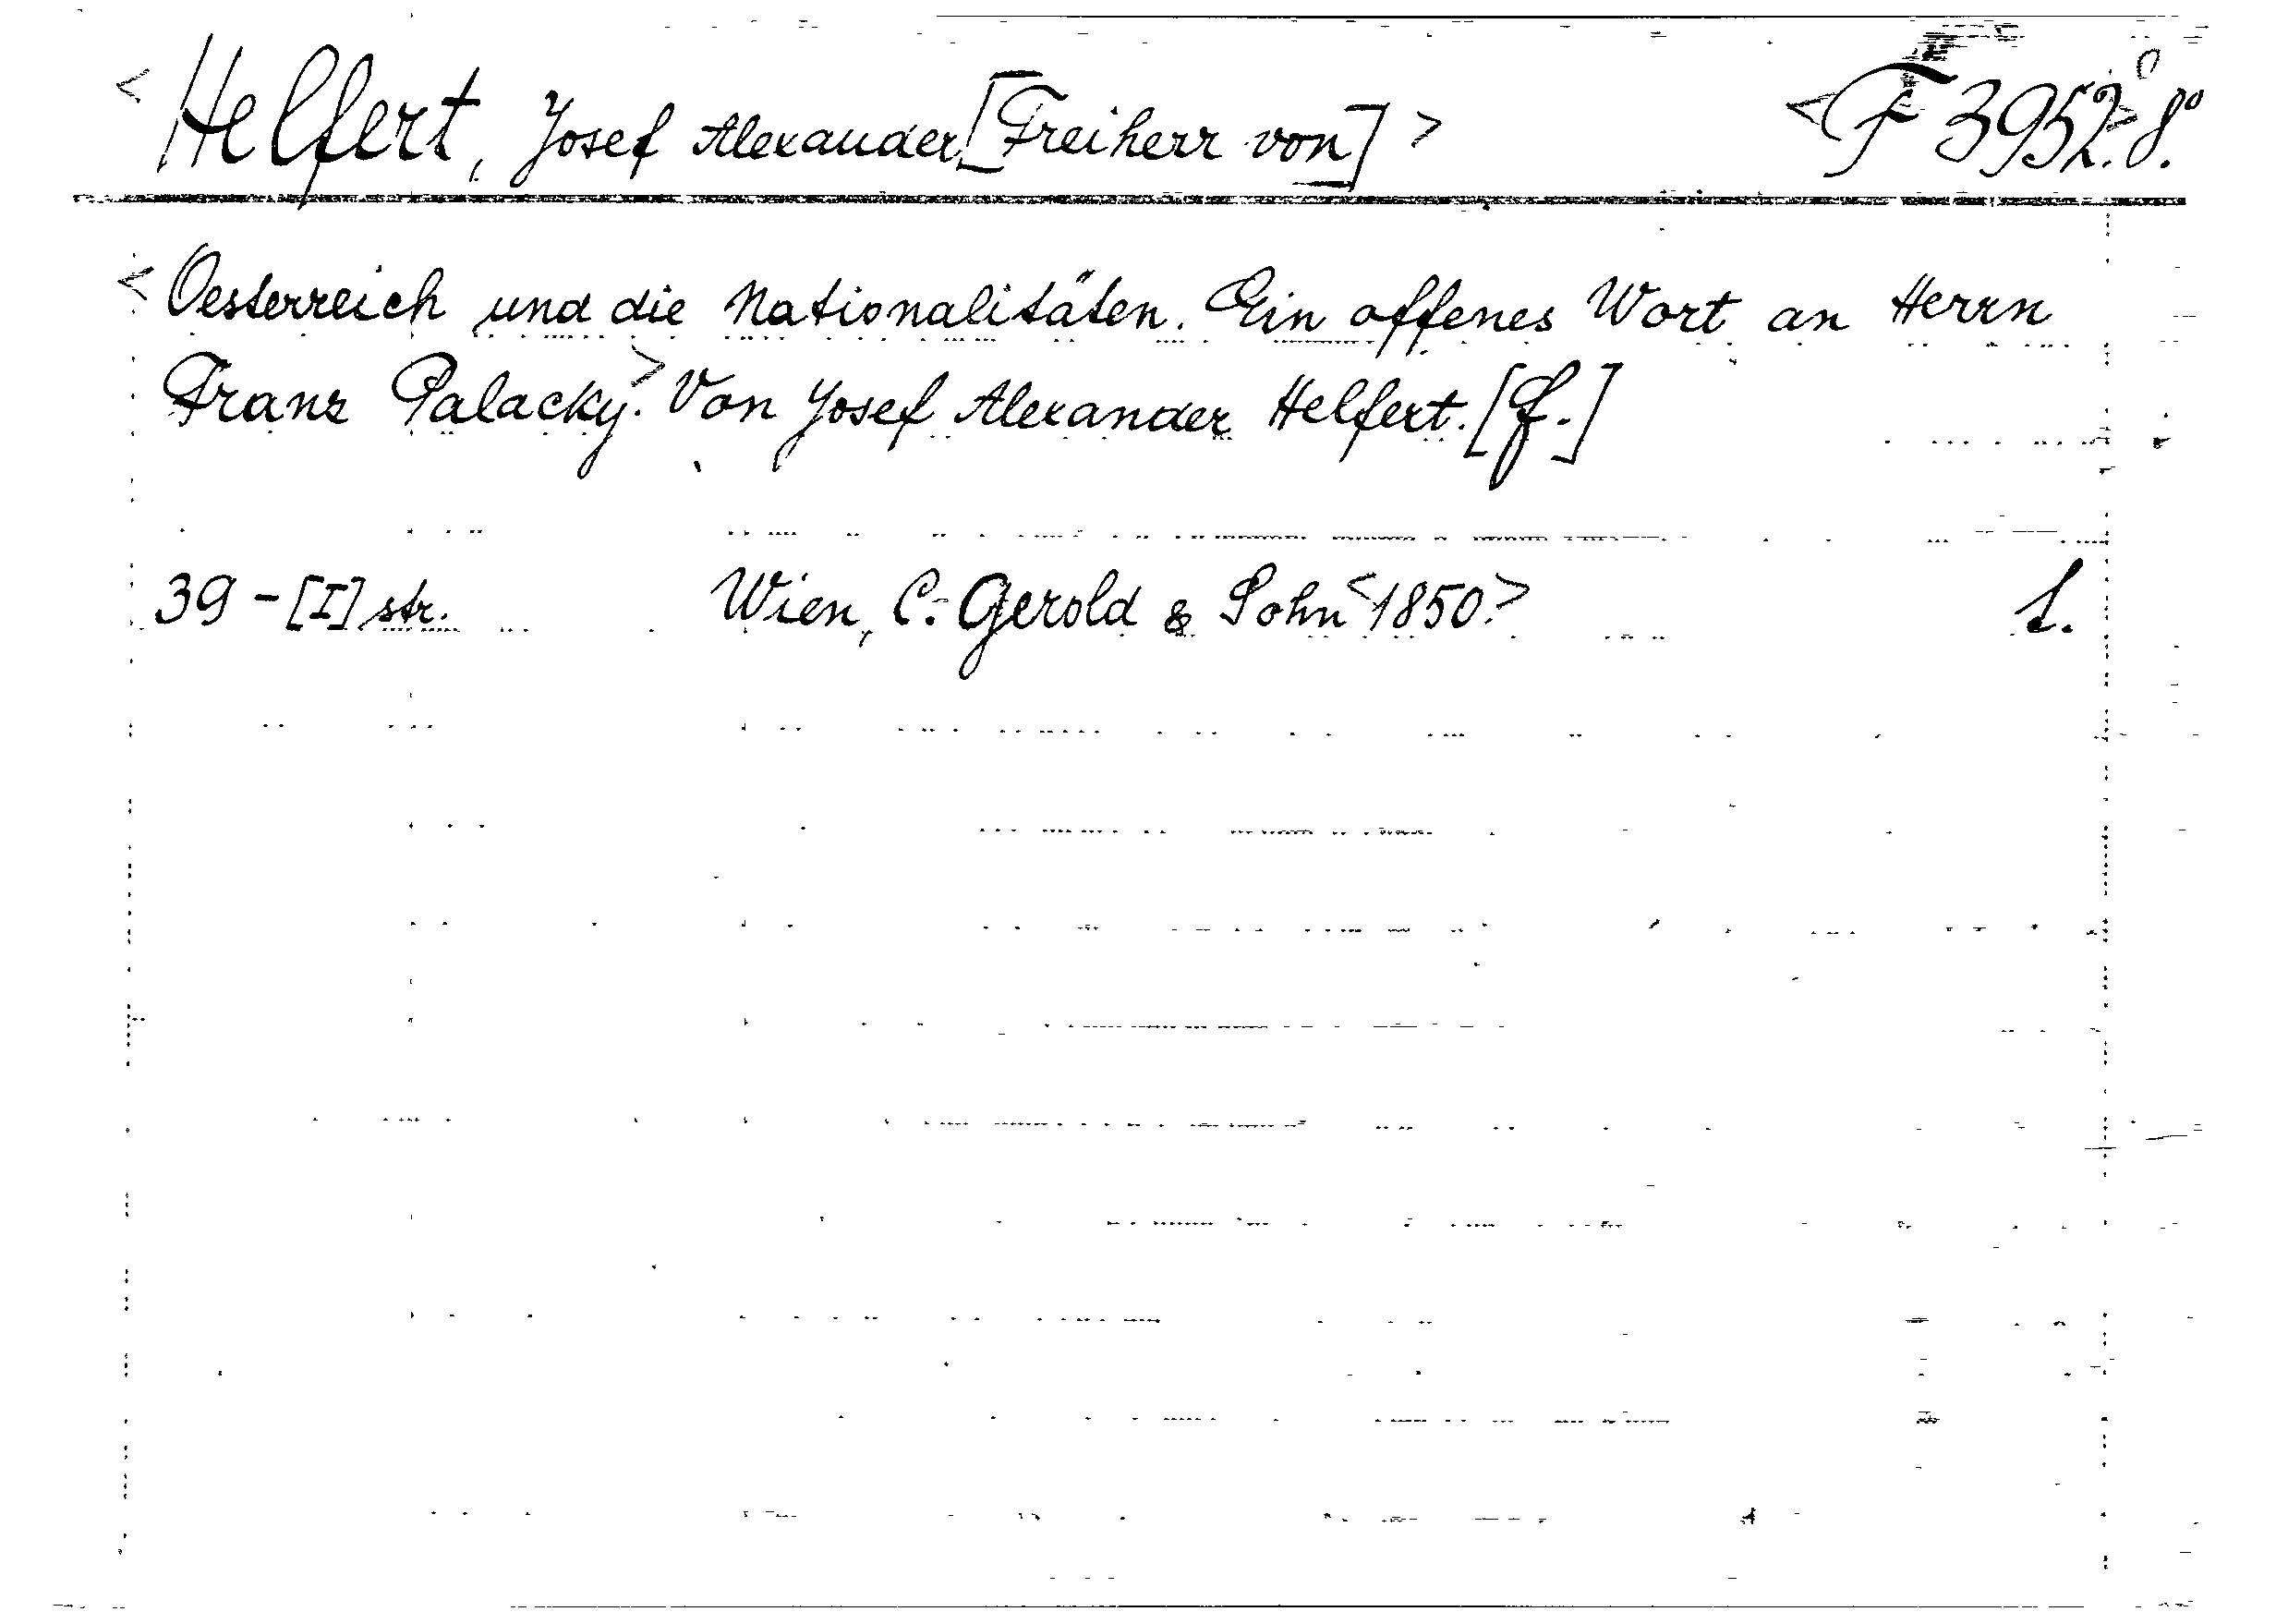 <Helfert, Josef Alexander [Freiherr von]> <F 3952.> 8º.
<Oesterreich und die Nationalitäten. Ein offenes Wort an Herrn
Franz Palacky.> Von Josef Alexander Helfert. [f.]
39 - [I] str. Wien, C. Gerold & Sohn <1850.> 1.